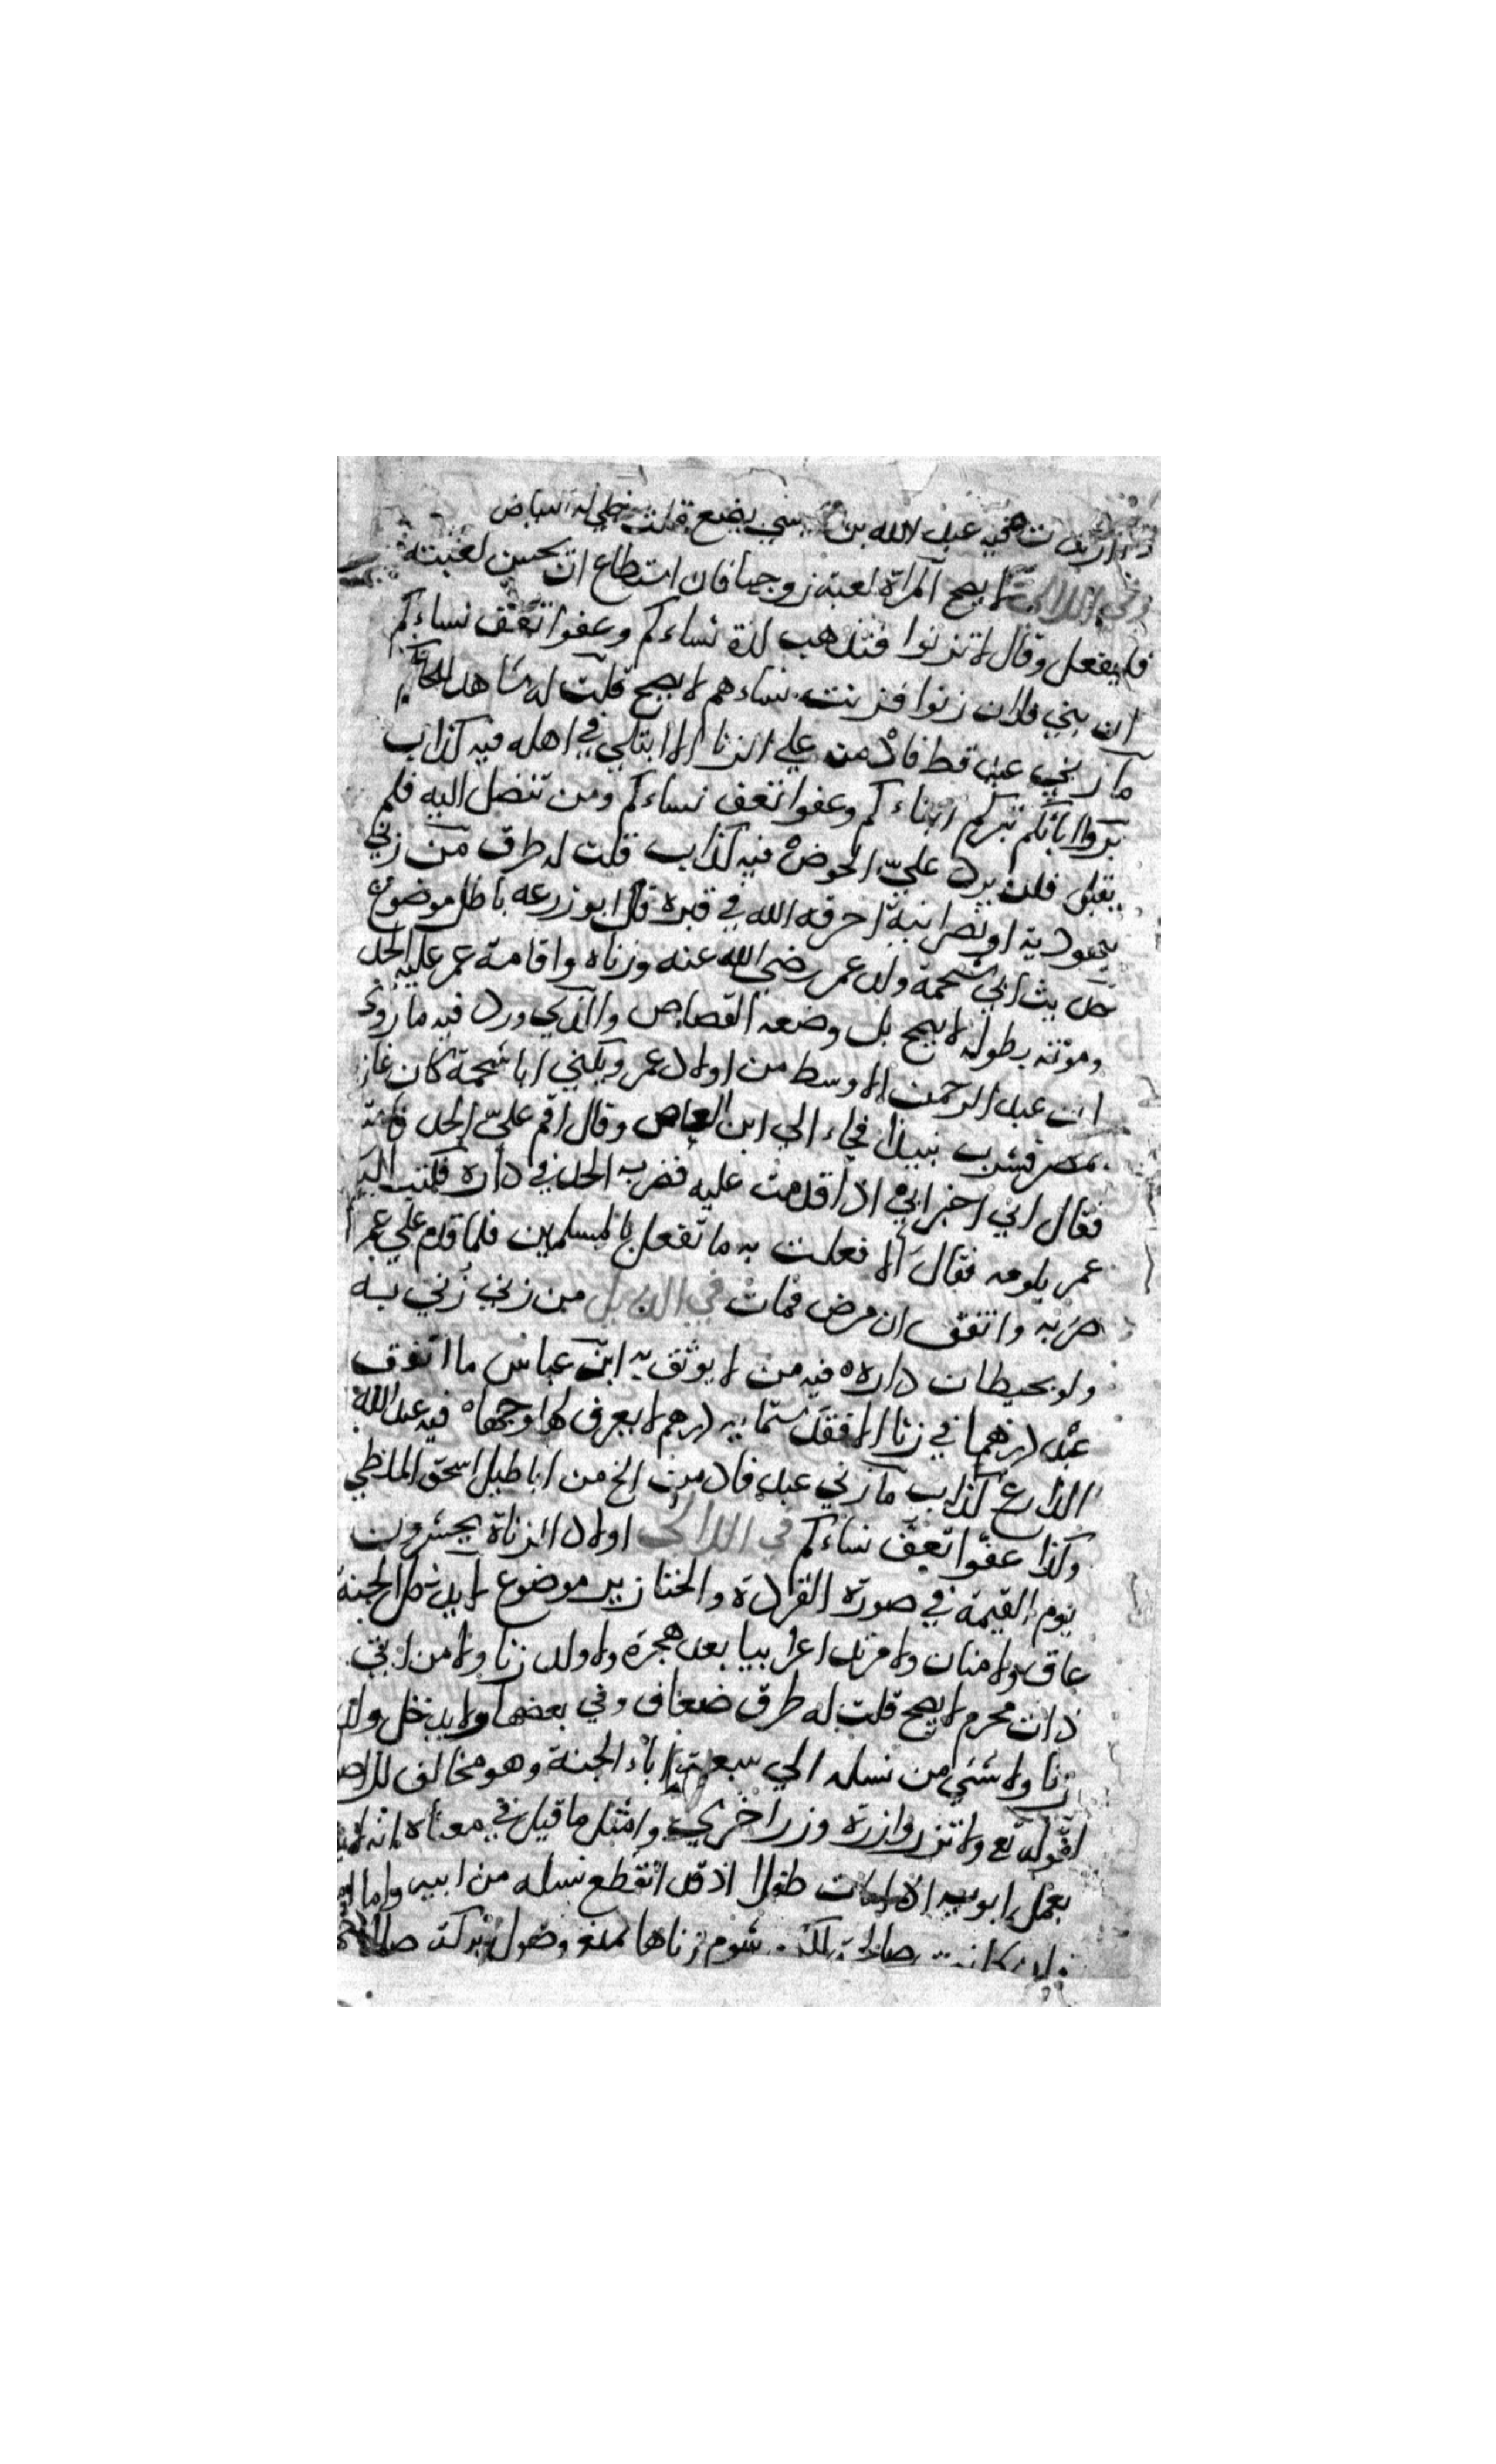 فيه عبد الله بن يضع قلت
في اللآلئ لا يصح المراة لعبة زوجها فان استطاع ان يحسن لعبته
فليفعل وقال لا تزنوا فتذهب لذة نساءكم وعفوا تعف نساءكم
ان بني فلان زنوا فزنت نساءهم لا يصح قلت له شاهد للحاكم
ما زني عبد قط فادمن علي الزنا الا ابتلي في اهله فيه كذاب
بروا ابائكم تبركم ابناءكم وعفوا تعف نساءكم ومن تنصل اليه فلم
يقبل فلن يرد عليّ الحوض فيه كذاب قلت له طرق من زني
بيهودية او نصرانية احرقه الله في قبره قال ابو زرعه باطل موضوع
حديث ابي شحمة ولد عمر رضي الله عنه وزناه واقامة عمر عليه الحد
وموته بطوله لا يصح بل وضعه القصاص والذي ورد فيه ما روي
ان عبد الرحمن الاوسط من اولاد عمر ويكني ابا شحمة كان غاز
بمصر فشرب نبيذا فجاء الي ابن العاص وقال اقم عليّ الحد
فقال اني اخبر ابي اذا قدمت عليه فضربه الحد في داره فكتب اليه
عمر يلومه فقال الا فعلت به ما تفعل بالمسلمين فلما قدم علي عمر
ضربه واتفق ان مرض فمات في الذيل من زني زني به
ولو بحيطان داره فيه من لا يوثق به ابن عباس ما انفق
عبد درهما في زنا الا فقد ستمايه درهم لا يعرف لها وجها فيه عبد الله
الذارع كذاب ما زني عبد فادمن الخ من اباطيل اسحق الملطي
وكذا عفوا تعف نساءكم في اللآلئ اولاد الزناة يحشرون
يوم القيمة في صورة القردة والخنازير موضوع لا يدخل الجنة
عاق ولا منان ولا مرتد اعرابيا بعد هجرة ولا ولد زنا ولا من اتي
ذات محرم لا يصح قلت له طرق ضعاف وفي بعضها ولا يدخل ولد
زنا ولا شئي من نسله الي سبعة اباء الجنة وهو مخالف
لقوله تع ولا تزر وازرة وزر اخري وامثل ما قيل في معناه انه
بعمل ابويه اذا مات طفلا اذ قد انقطع نسله من ابيه واما
كانت صالحة شوم زناها يمنع وصول بركة